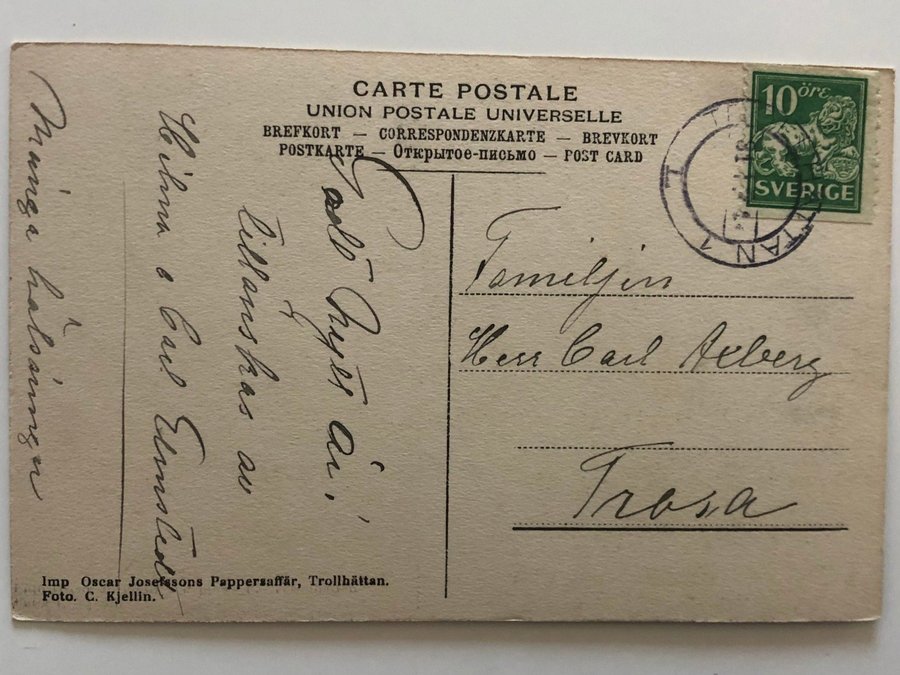 CARTE POSTALE
UNION POSTALE UNIVERSELLE
BREFKORT — CORRESPONDENZKARTE — BREVKORT
POSTKARTE — Открытое-письмо — POST CARD
10 öre
SVERIGE
TTAN 1
Godt Nytt år,
tillönskas av
Hilma o Carl Elmstedt
Många hälsningar
Familjen
Herr Carl Axberg
Trosa
Imp Oscar Josefssons Pappersaffär, Trollhättan.
Foto. C. Kjellin.